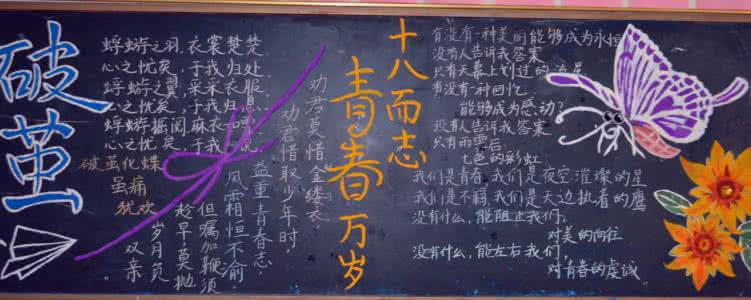 破茧
蜉蝣之羽,衣裳楚楚
心之忧矣,于我归处
蜉蝣之翼,采采衣服
心之忧矣,于我归息
蜉蝣掘阅,麻衣
心之忧矣,于我归
破茧化蝶
虽痛
犹欢
劝君莫惜金缕衣
劝君惜取少年时,
益重青春志,
风霜恒不渝
但嘱加鞭须
趁早,莫抛
岁月负
双亲
十八而志
青春万岁
有没有一种美丽能够成为永恒
没有人告诉我答案
只有天幕上划过的流星
有没有一种回忆
能够成为感动?
没有人告诉我答案
只有雨雪后
七色的彩虹
我们是青春,我们是夜空璀璨的星
我们是不羁,我们是天边执着的鹰
没有什么,能阻止我们,
对美的向往
没有什么,能左右我们,
对青春的虔诚